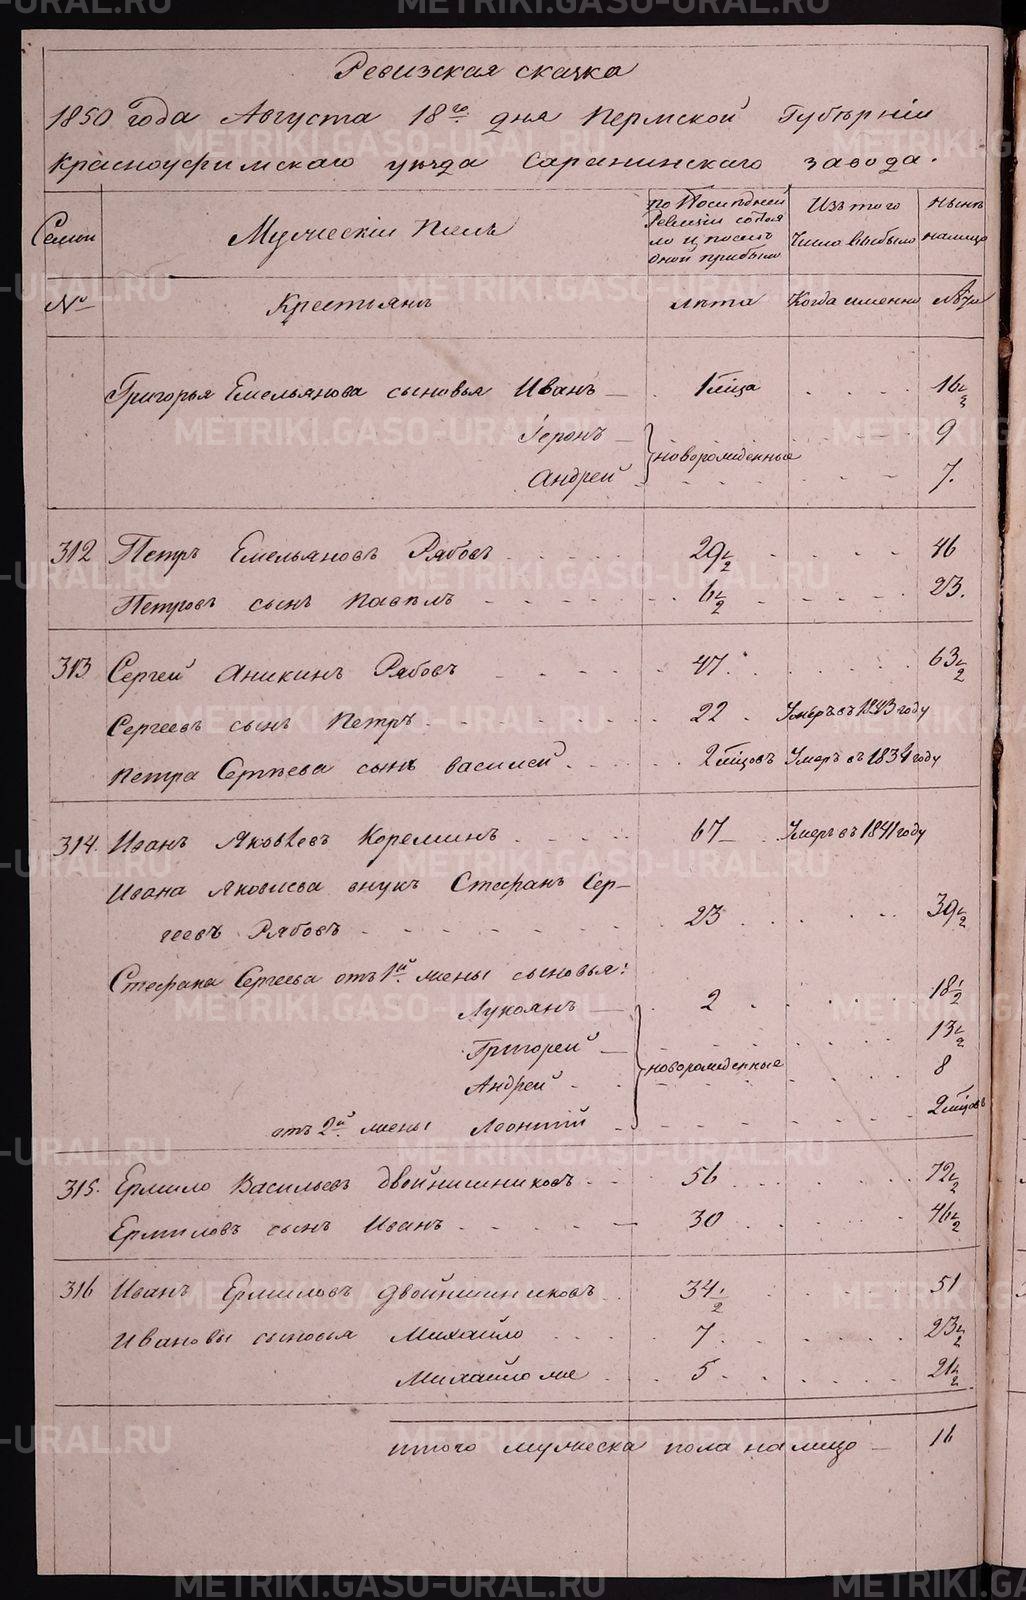 METRIKI.GASO-URAL.RU
Ревизская сказка
1850 года Августа 18го дня Пермской Губернiи
Красноуфимскаго уѣзда Саранинскаго завода.
Семьи
Мужескiй Полъ
по Послѣдней Ревизiи состояло и послѣ оной прибыло
Изъ того Числа выбыло
Нынѣ налицо
№
Крестьянъ
лѣта
Когда именно
лѣта
Григорья Емельянова сыновья Иванъ 1 мѣсца 16½
Iеронъ 9
новорожденные
Андрей 7.
312 Петръ Емельяновъ Рябовъ 29½ 46
Петровъ сынъ Павелъ 6½ 23.
313 Сергей Аникинъ Рябовъ 47 63½
Сергеевъ сынъ Петръ 22 Умеръ въ 1843 году
Петра Сергѣева сынъ василей 2 мѣсцовъ Умеръ въ 1834 году
314. Иванъ Яковлевъ Корелинъ 67 Умеръ въ 1841 году
Ивана Яковлева внукъ Стефанъ Сер-
геевъ Рябовъ 23 39½
Стефана Сергеева отъ 1й жены сыновья:
Лукоянъ 2 18½
Григорей 13½
новорожденные
Андрей 8
отъ 2й жены Леонтiй 2 мѣсцовъ
315. Ермило Васильевъ двойнишниковъ 56 72½
Ермиловъ сынъ Иванъ 30 46½
316 Иванъ Ермиловъ двойнишниковъ 34½ 51
Ивановы сыновья Михайло 7 23½
Михайло же 5 21½
итого мужеска пола на лицо 16